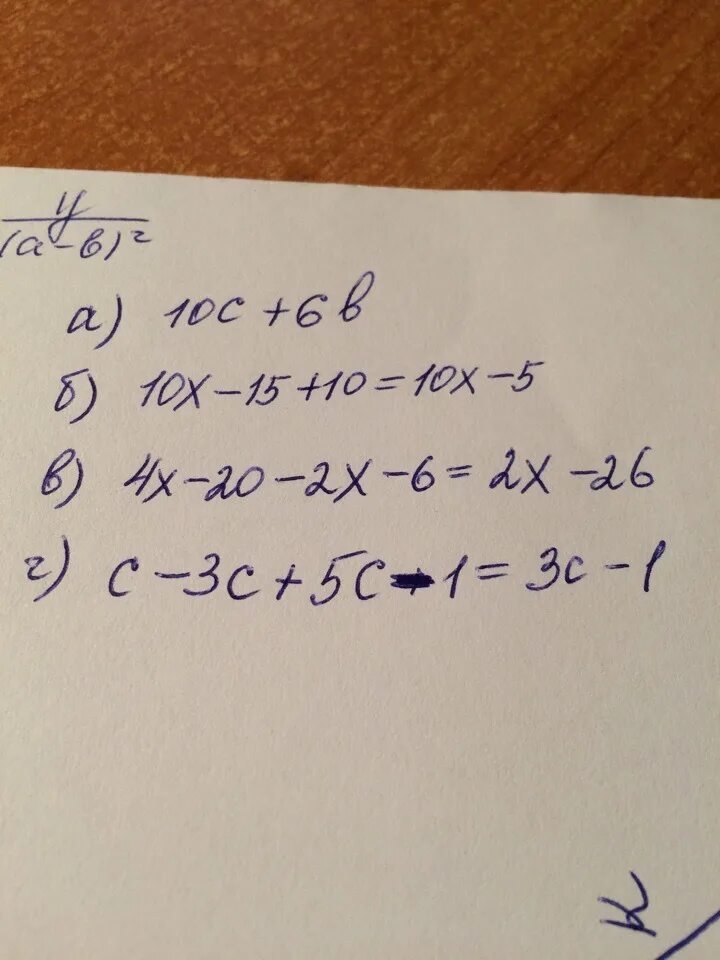 y
(a-b)²
а) 10c + 6b
б) 10x - 15 + 10 = 10x - 5
в) 4x - 20 - 2x - 6 = 2x - 26
г) c - 3c + 5c - 1 = 3c - 1